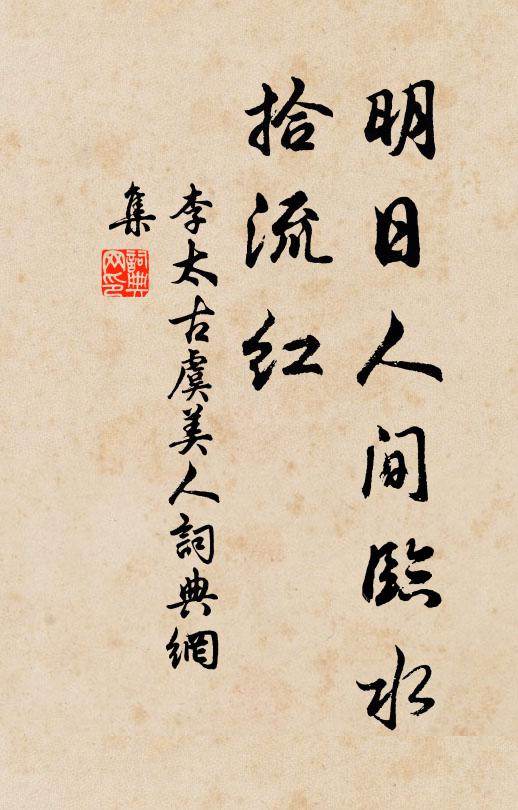 明日人间臨水
拾流红
李太古虞美人詞典網
集
詞典
网印